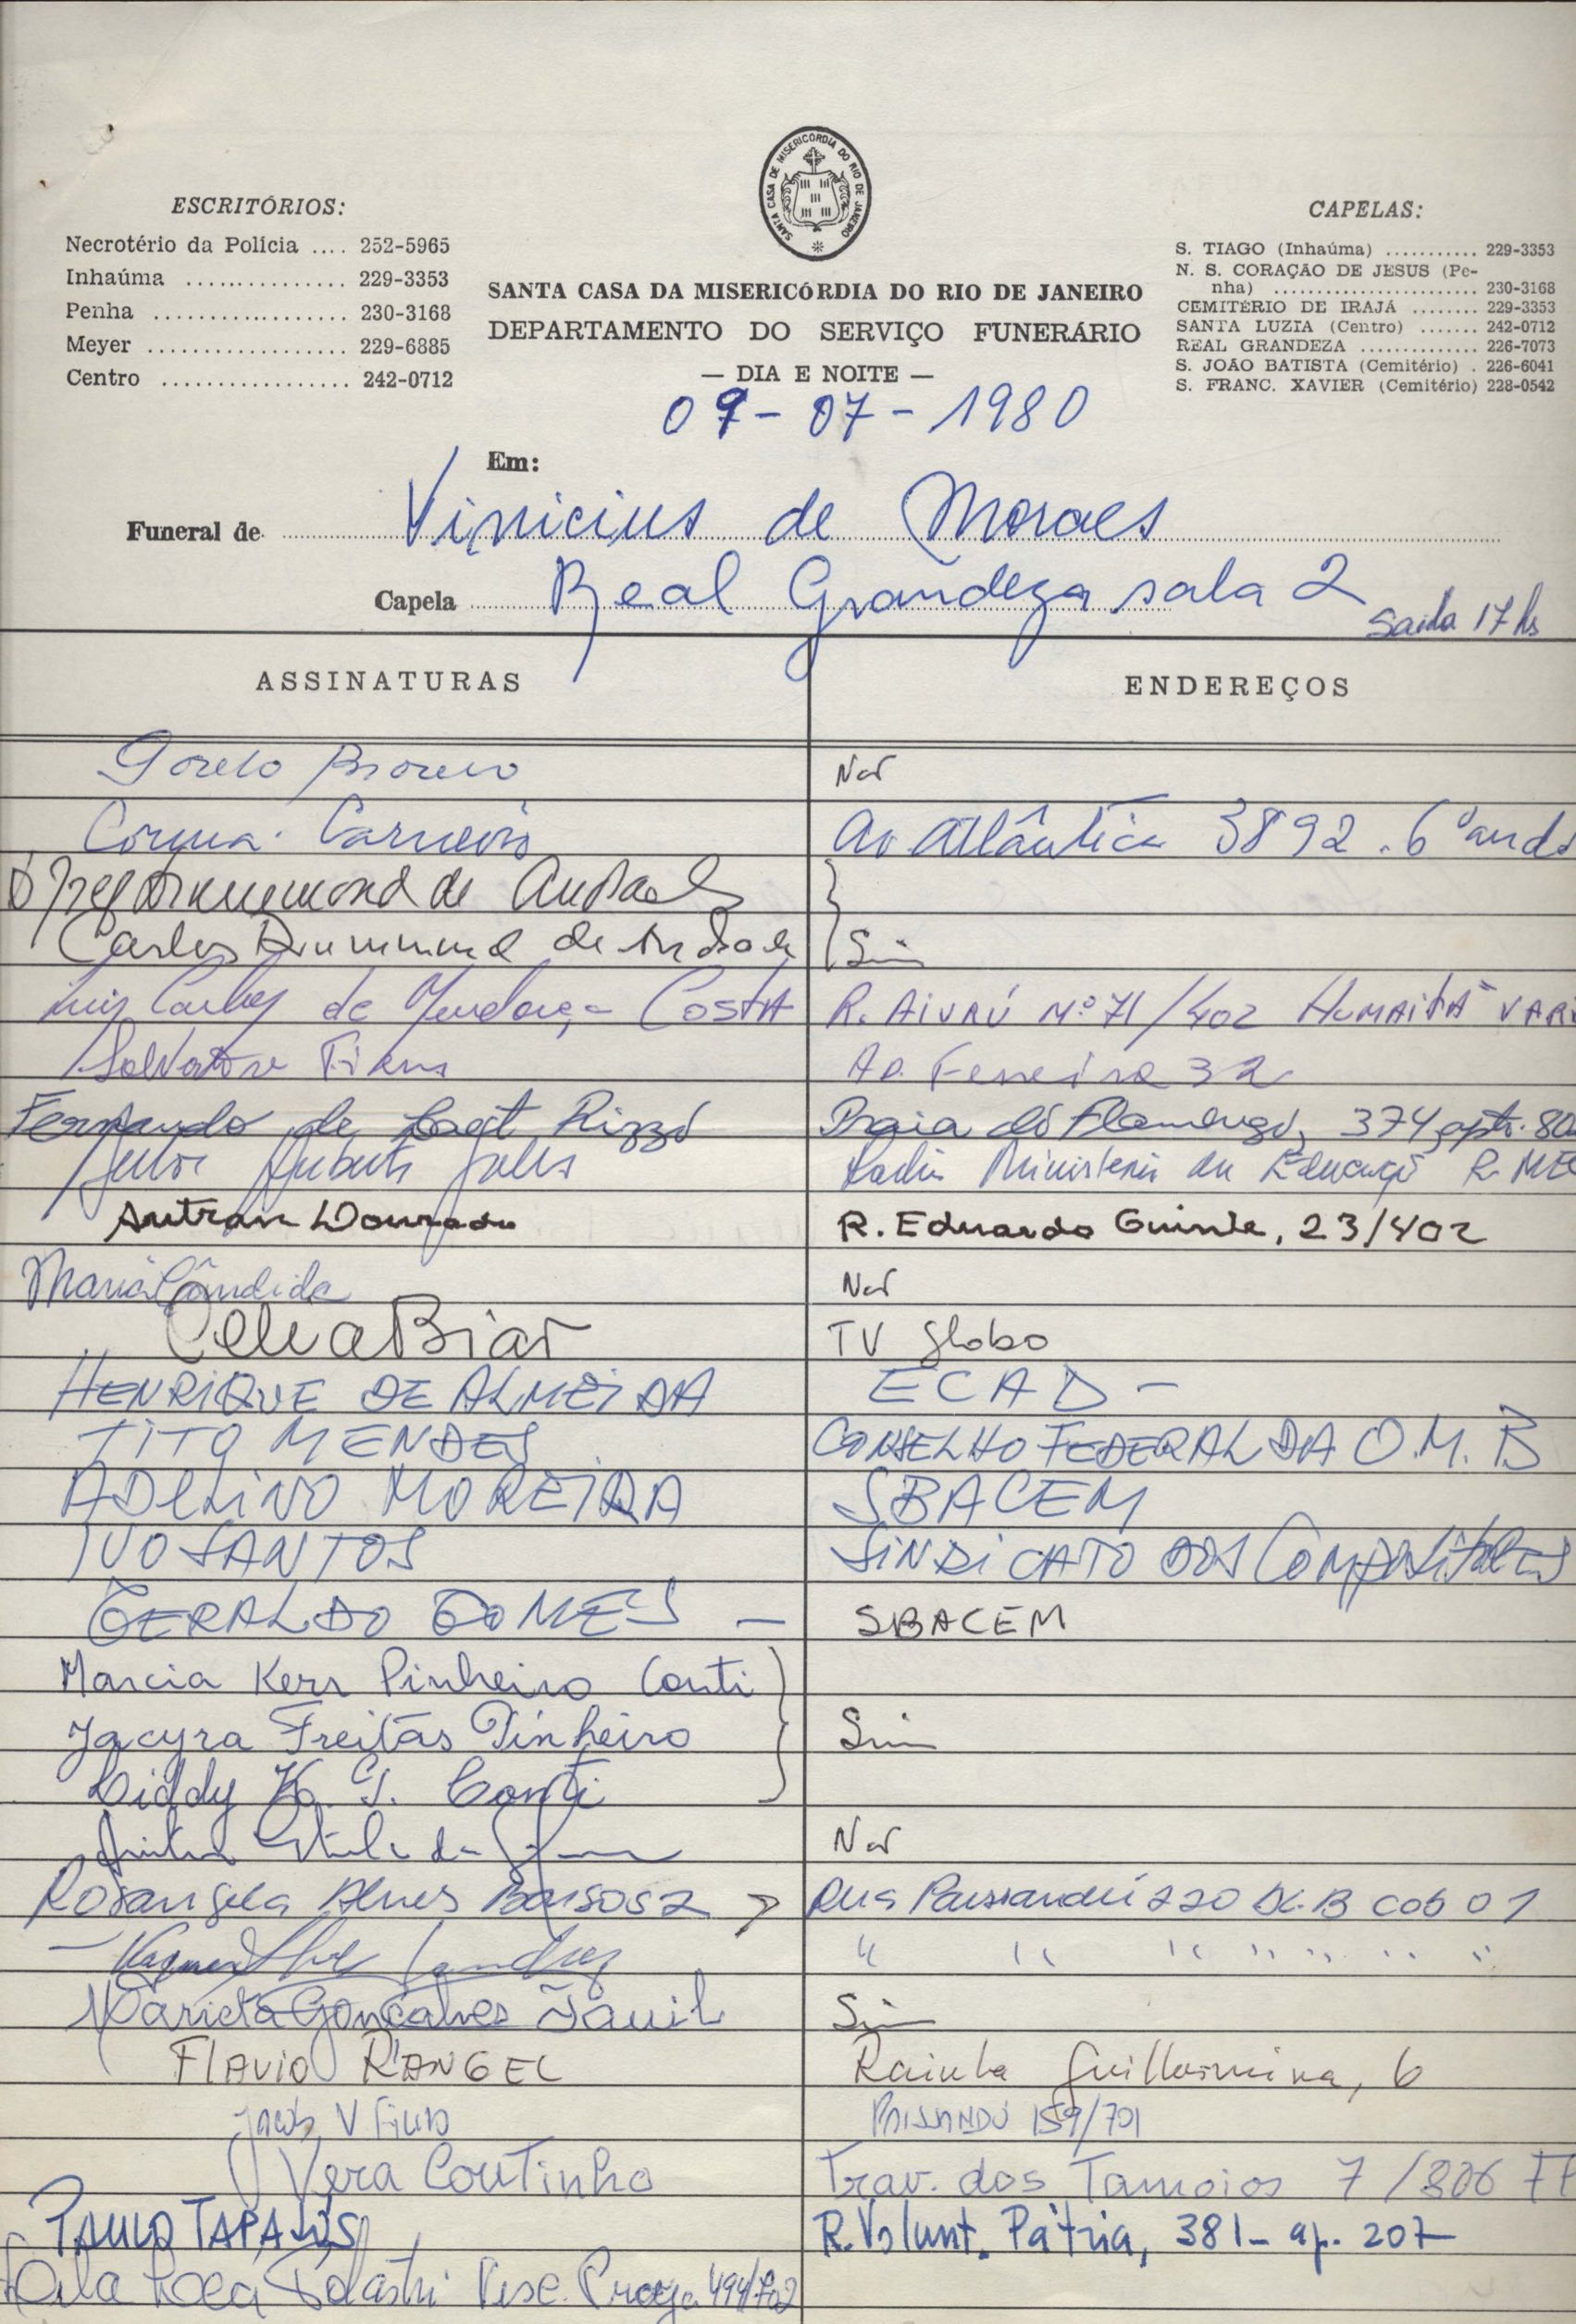 SANTA CASA DE MISERICORDIA DO RIO DE JANEIRO
ESCRITÓRIOS:
Necrotério da Polícia .... 252-5965
Inhaúma ............... 229-3353
Penha .................. 230-3168
Meyer .................. 229-6885
Centro ................. 242-0712
SANTA CASA DA MISERICÓRDIA DO RIO DE JANEIRO
DEPARTAMENTO DO SERVIÇO FUNERÁRIO
— DIA E NOITE —
CAPELAS:
S. TIAGO (Inhaúma) ........... 229-3353
N. S. CORAÇÃO DE JESUS (Pe-
nha) ........................ 230-3168
CEMITÉRIO DE IRAJÁ ........ 229-3353
SANTA LUZIA (Centro) ....... 242-0712
REAL GRANDEZA .............. 226-7073
S. JOÃO BATISTA (Cemitério) . 226-6041
S. FRANC. XAVIER (Cemitério) 228-0542
09-07-1980
Em:
Funeral de Vinicius de Moraes
Capela Real Grandeza sala 2
Saida 17 hs
ASSINATURAS ENDEREÇOS
Carneiro Av Atlântica 3892 . 6º
Drummond de Andrade
Carlos Drummond de Andrade Sim
Luiz Carlos de Mendonça Costa R. Nº 71/402 HUMAITÁ
Salvatore Ferreira 32
Fernando de Rizzó Praia do Flamengo, 374 apto.
Radio Ministerio da Educação R. MEC
Autran Dourado R. Eduardo Guinle, 23/402
Maria Cândida
Celia Biar TV Globo
HENRIQUE DE ALMEIDA ECAD -
TITO MENDES CONSELHO FEDERAL DA O.M.B
ADELINO MOREIRA SBACEM
IVO SANTOS SINDICATO DOS COMPOSITORES
GERALDO GOMES — SBACEM
Marcia Kerr Pinheiro Conti
Jacyra Freitas Pinheiro Sim
Liddy K. G. Conti
Rosangela Alves Barbosa Rua Paissandú 220 BL.B COB 01
Marieta Gonçalves Sim
FLAVIO RANGEL Rainha Guillermina, 6
PAISSANDÚ 159/701
Vera Coutinho Trav. dos Tamoios 7 /806
PAULO TAPAJÓS R. Volunt. Pátria, 381- ap. 207
Visc. 494/702